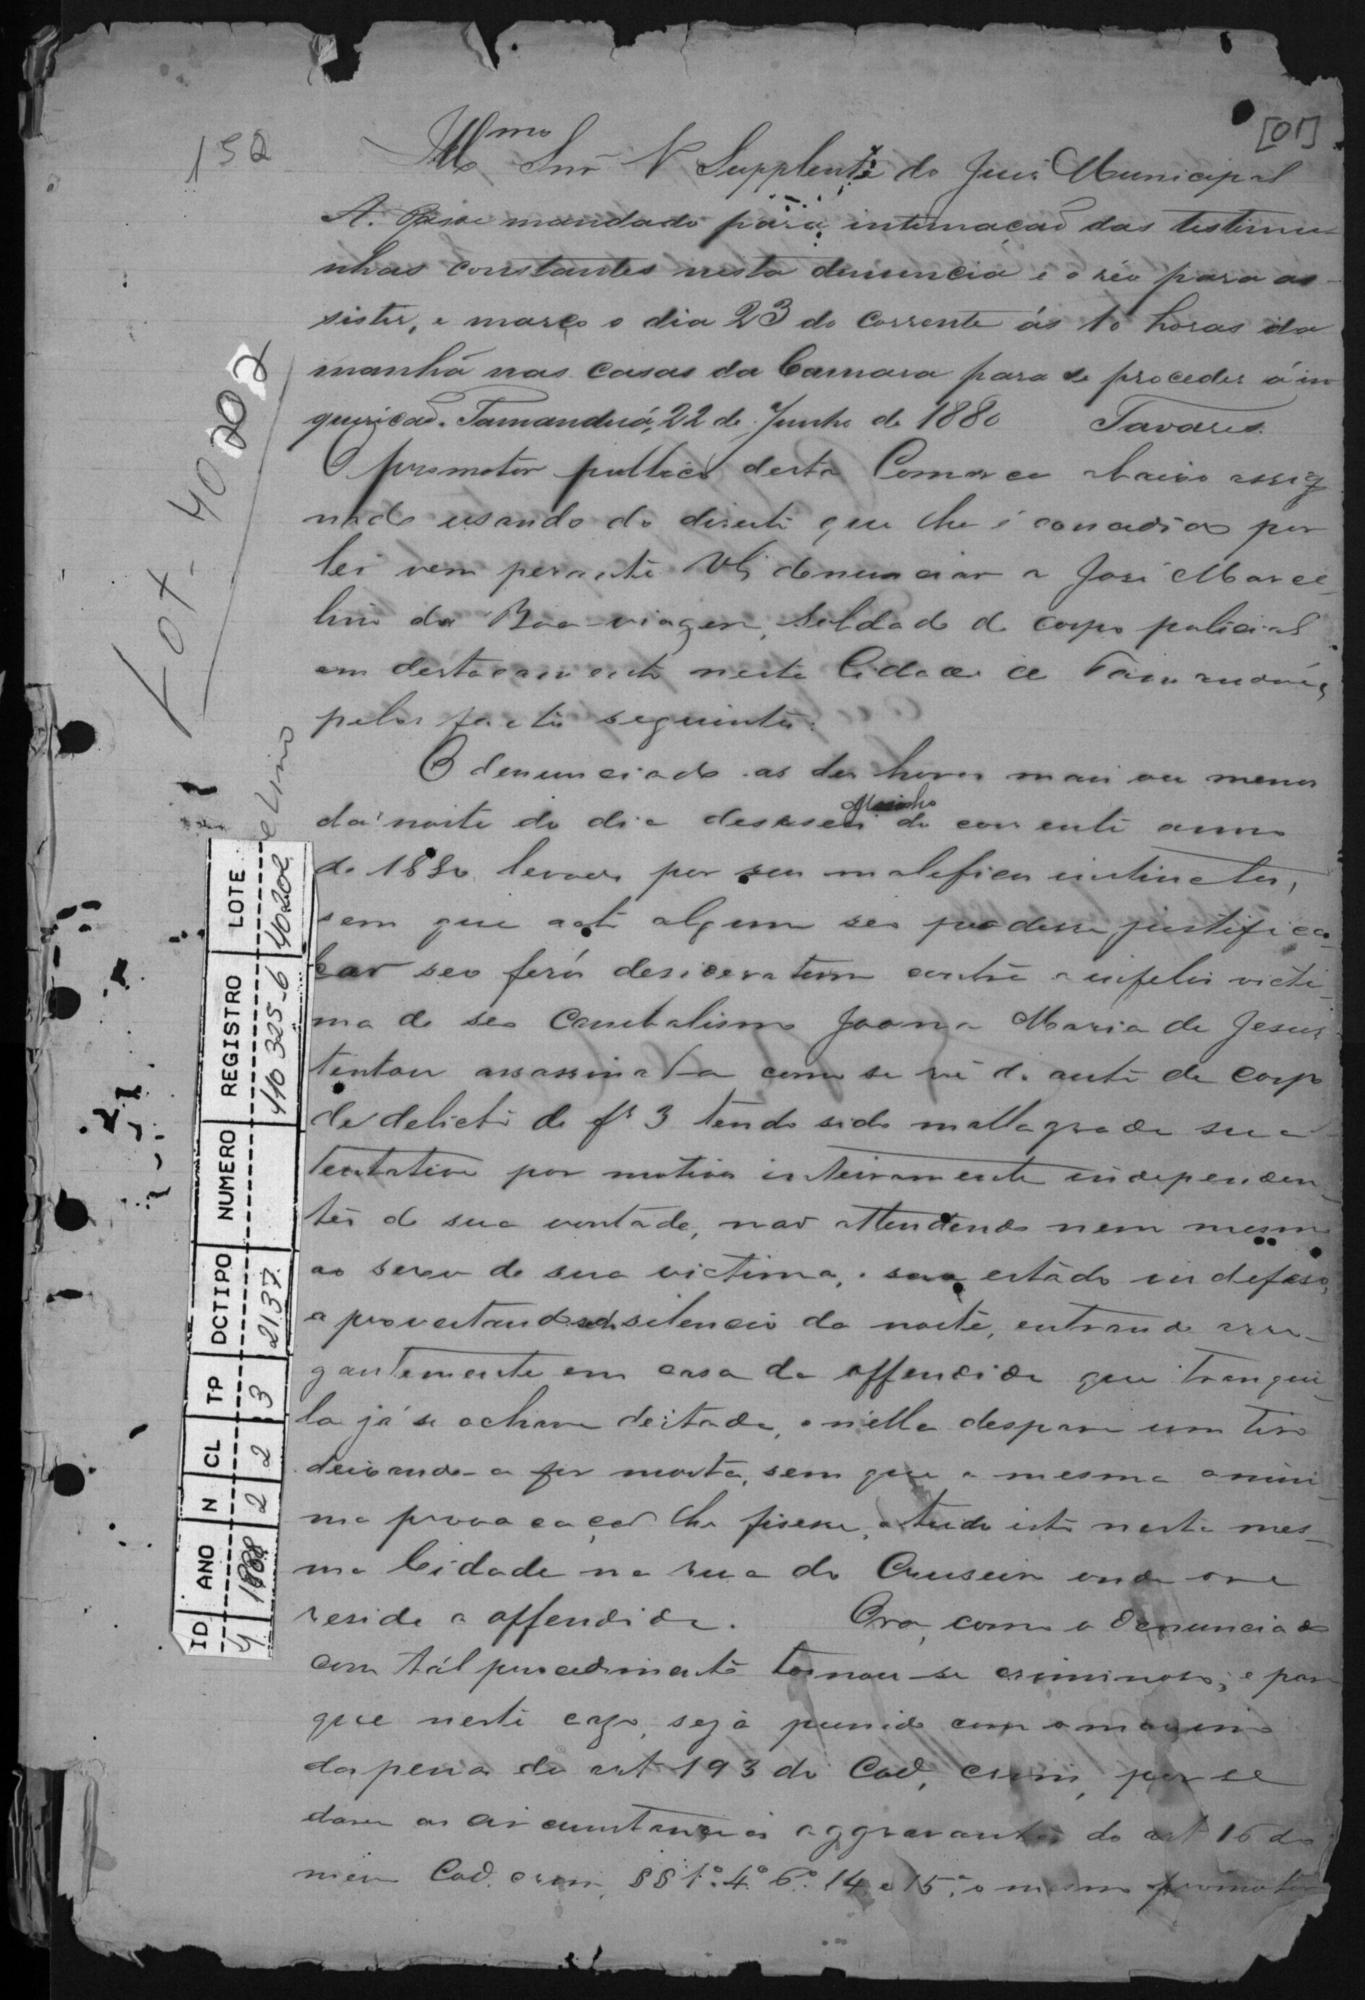 [01]
132
Illmo Snr Supplente do Juiz Municipal
A. Passe mandado para intimação das testimu-
nhas constantes nesta denuncia e o réo para as-
sistir, e março o dia 23 do corrente ás 10 horas da
manhã nas casas da Camara para se proceder á in
quirição. Tamanduá, 22 de Junho de 1880 Tavares
O promotor publico desta Comarca abaixo assig
nado usando do direito que lhe é concedido por
lei vem perante VS denunciar a José Marce-
lino da Boa viagem, soldado do corpo policial
em destacamento nesta Cidade de Tamanduá,
pelo facto seguinte:
O denunciado as dez horas mais ou menos
da noite do dia deseseis do corrente anno
de 1880 levado por seus maleficos instinctos,
sem que acto algum seu podesse justificar
seo feroz desideratum contra a infeliz victi-
ma de seo canibalismo Joana Maria de Jesus
tentou assassinal-a como se vê do auto de corpo
de delicto de fs 3 tendo sido mallograda sua
tentativa por motivos inteiramente independen-
tes de sua vontade, não attendendo nem mesmo
ao sexo de sua victima, seo estado indefeso,
aproveitando do silencio da noite, entrando arro-
gantemente em casa da offendida que tranqui-
la já se achava deitada, e nella despara um tiro
deixando-a por morta, sem que a mesma a mini-
ma provocação lhe fizesse, e tudo isto nesta mes-
ma Cidade na rua do Cruseiro onde
reside a offendida. Ora, como o denunciado
com tal procedimento tornou-se criminoso, e para
que neste caso seja punido com o maximo
da pena do art 193 do Cod. crim, por se
darem as circumstancias aggravantes do art 16 do
mesmo Cod. crim, §§ 1º. 4º 6º. 14 e 15º, o mesmo promotor
Fot. 40202
elino
ID ANO N CL TP DCTIPO NUMERO REGISTRO LOTE
4 2 2 3 2137 410 325-6 40202